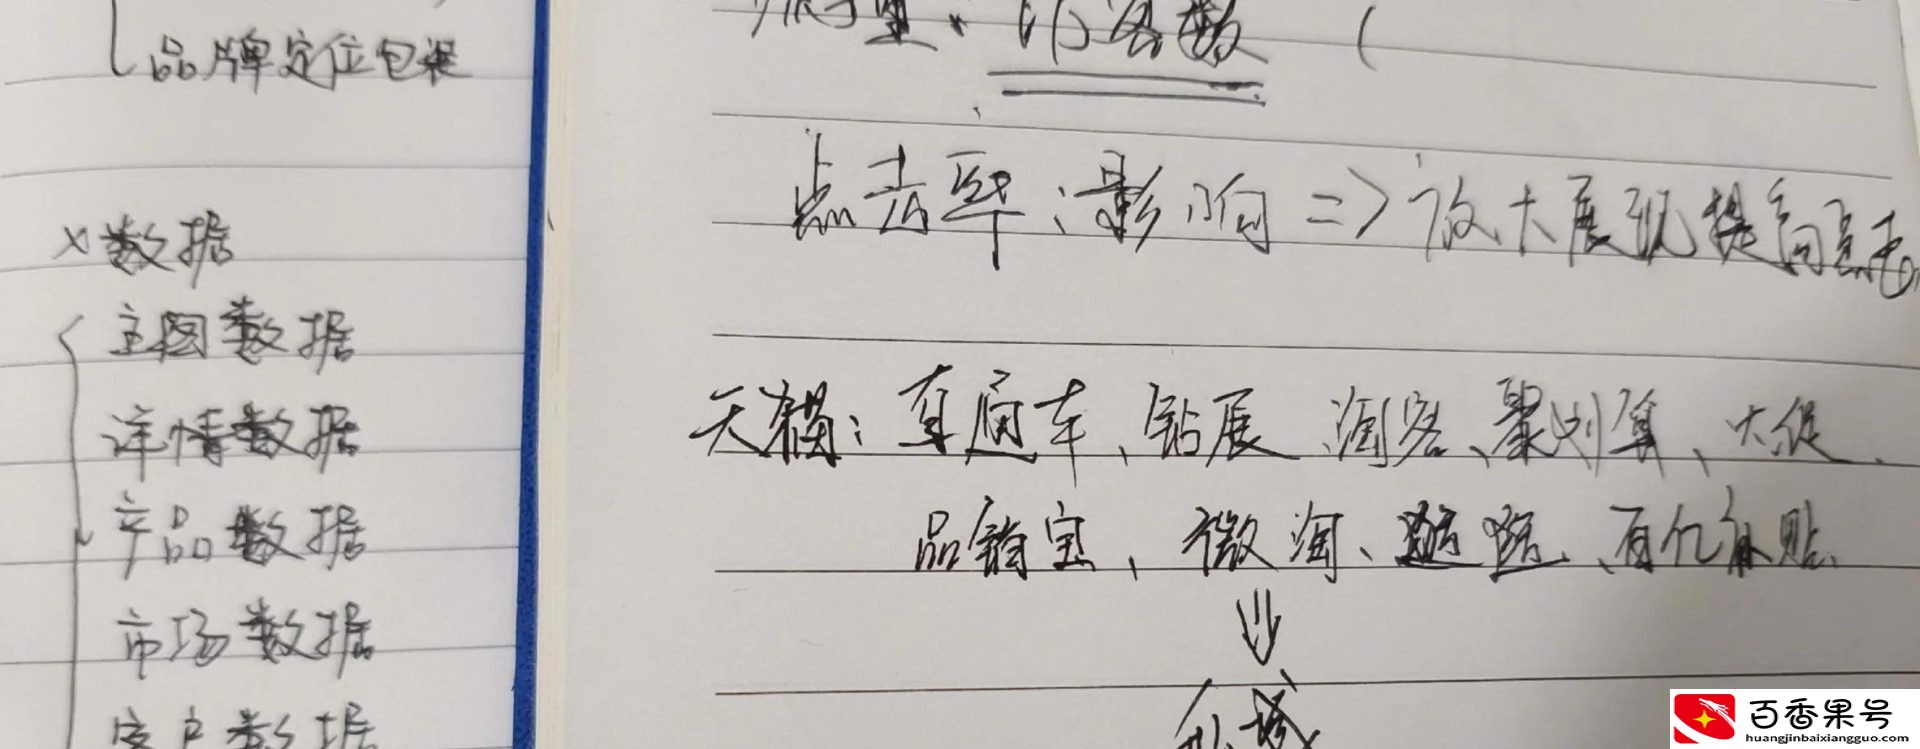 品牌定位包装
x数据
主图数据
详情数据
产品数据
市场数据
客户数据
访客数 (
点击率:影响=>放大展现提高
天猫:直通车、钻展、淘客、聚划算、大促、
品销宝、微淘、逛逛、百亿补贴、
私域
百香果号
huangjinbaixiangguo.com